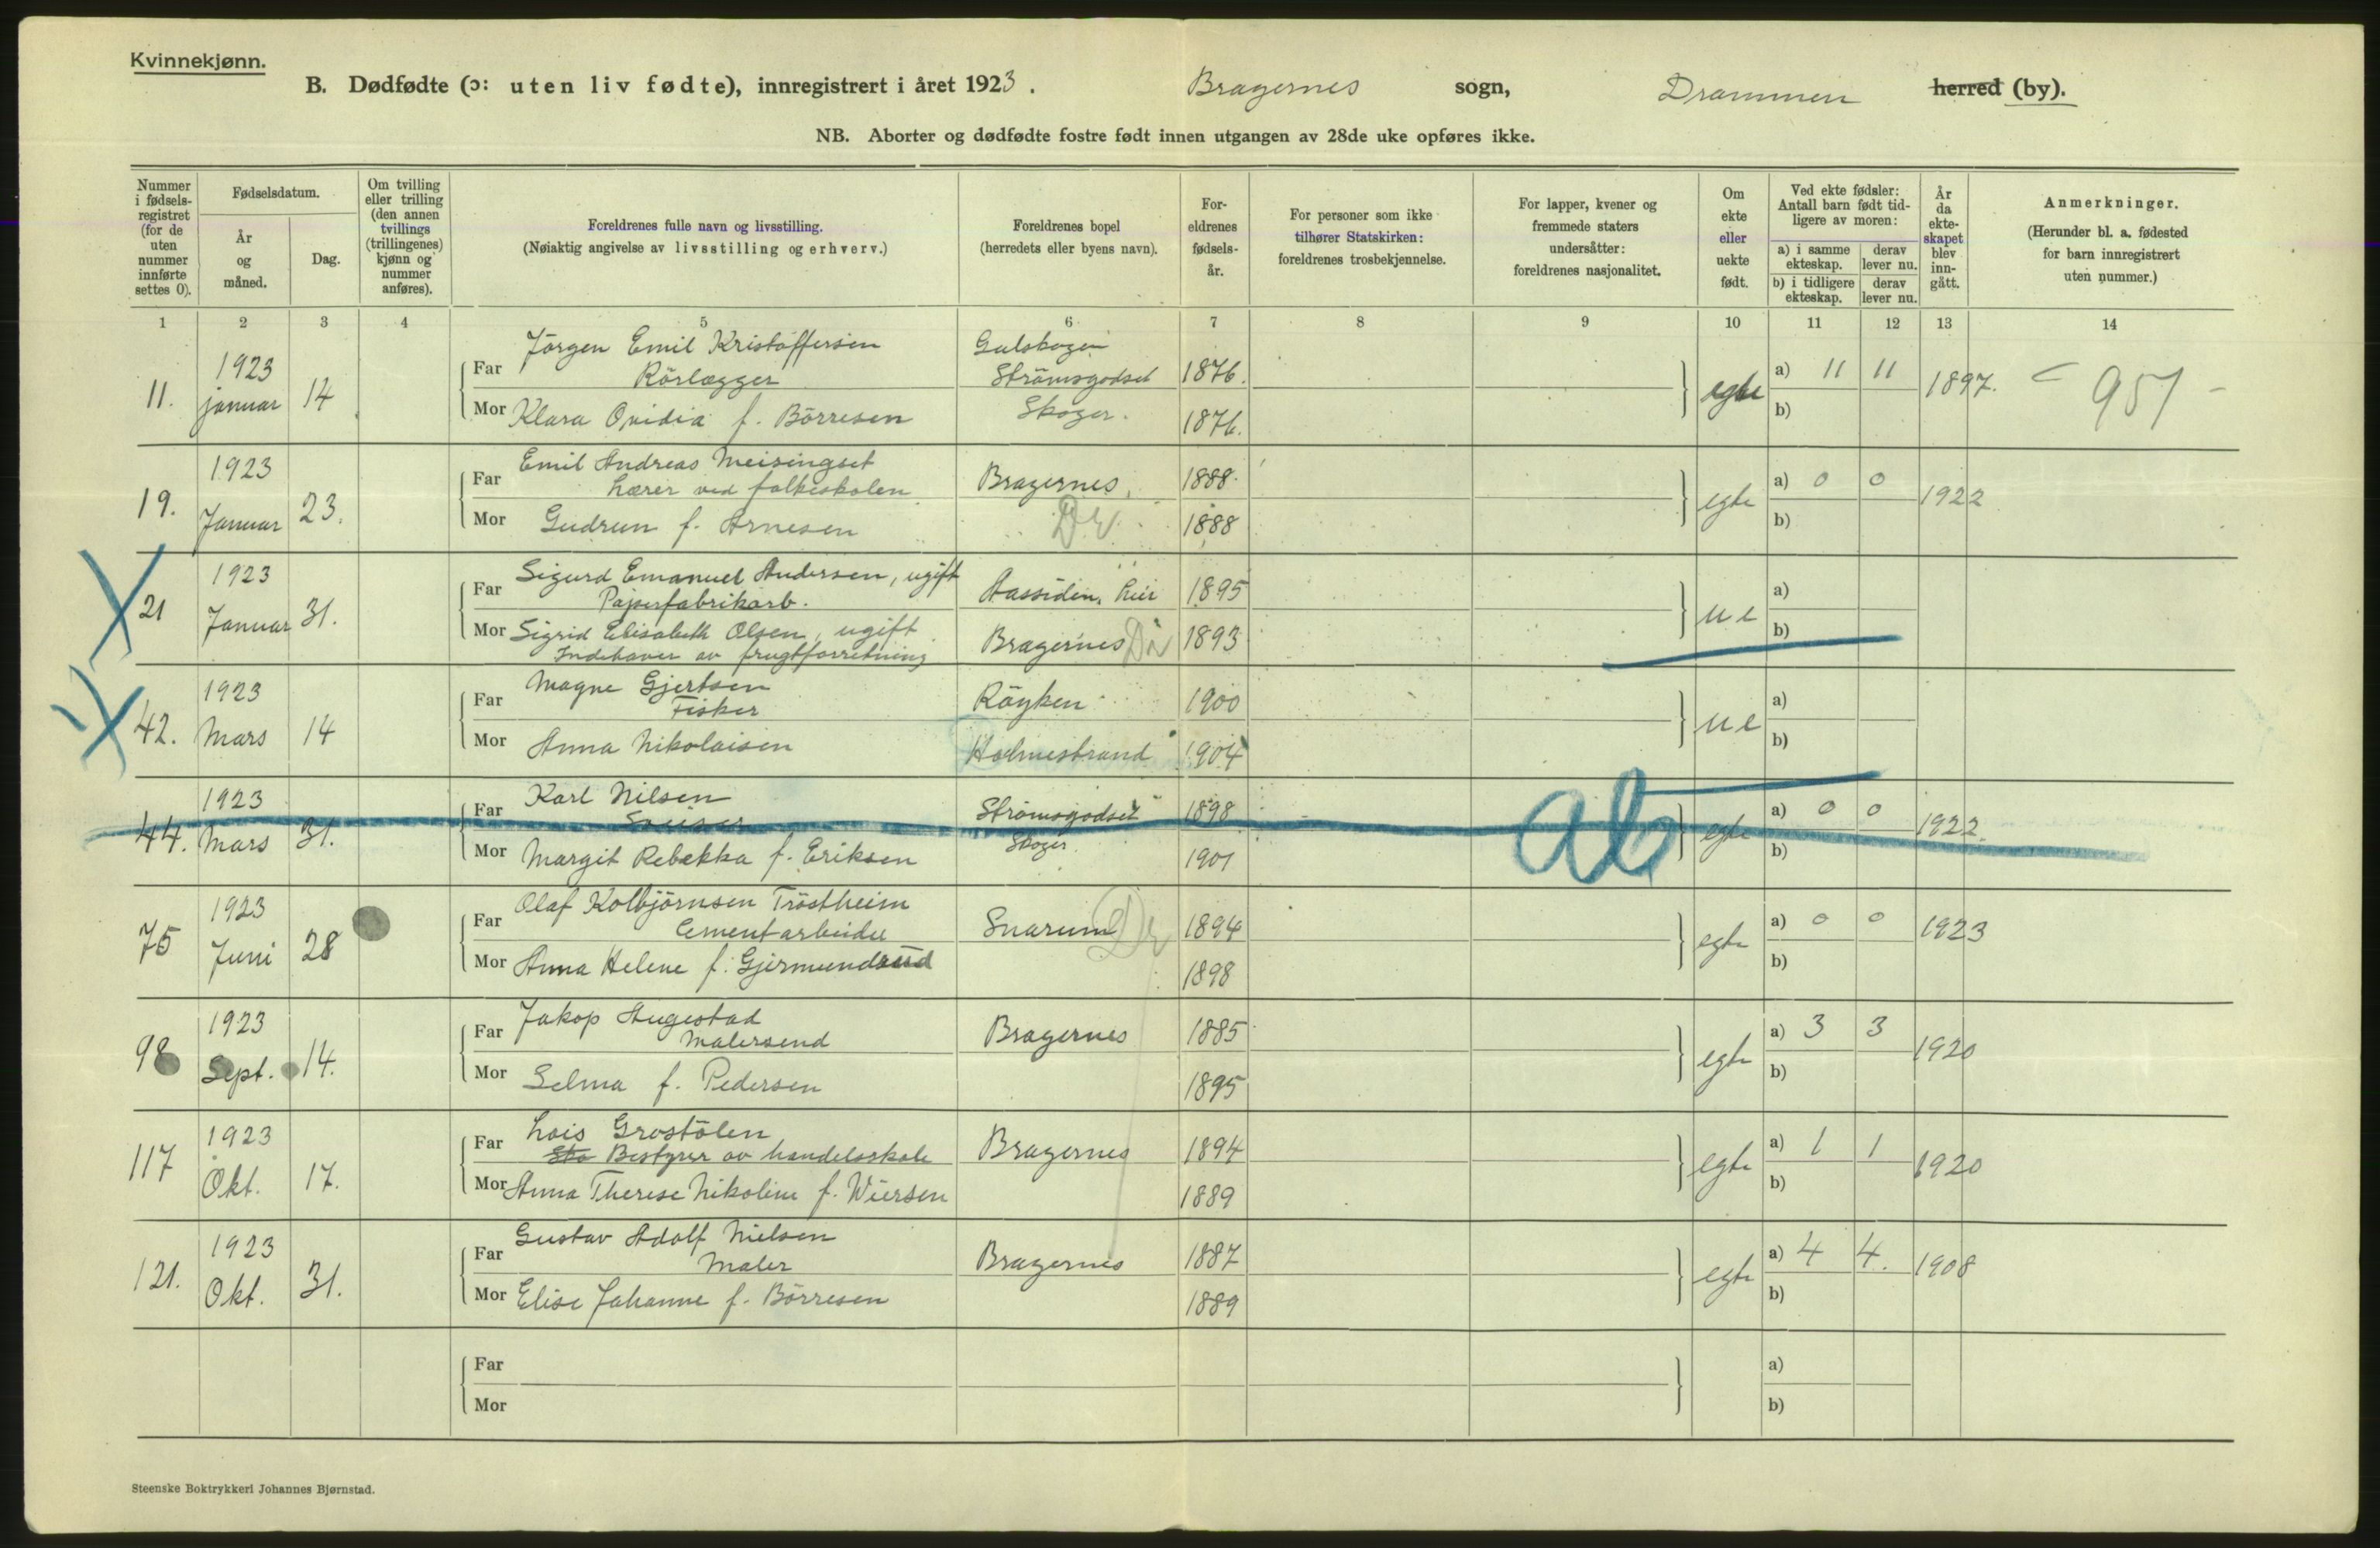 Kvinnekjønn.
B. Dødfødte (ɔ: uten liv fødte), innregistrert i året 1923. Bragernes sogn, Drammen herred (by).
NB. Aborter og dødfødte fostre født innen utgangen av 28de uke opføres ikke.
Nummer i fødsels-registret (for de uten nummer innførte settes 0).
Fødselsdatum.
År og måned.
Dag.
Om tvilling eller trilling (den annen tvillings (trillingenes) kjønn og nummer anføres).
Foreldrenes fulle navn og livsstilling.
(Nøiaktig angivelse av livsstilling og erhverv.)
Foreldrenes bopel
(herredets eller byens navn).
For-eldrenes fødsels-år.
For personer som ikke tilhører Statskirken: foreldrenes trosbekjennelse.
For lapper, kvener og fremmede staters undersåtter: foreldrenes nasjonalitet.
Om ekte eller uekte født.
Ved ekte fødsler: Antall barn født tid-ligere av moren:
a) i samme ekteskap. derav lever nu.
b) i tidligere ekteskap. derav lever nu.
År da ekte-skapet blev inn-gått.
Anmerkninger.
(Herunder bl. a. fødested for barn innregistrert uten nummer.)
1 2 3 4 5 6 7 8 9 10 11 12 13 14
11. 1923 januar 14
Far Jörgen Emil Kristoffersen Gulskogen
Rörlægger Strömsgodset 1876.
Mor Klara Ovidia f. Börresen Skoger. 1876.
egte a) 11 11 b) 1897. 951
19. 1923 Januar 23.
Far Emil Andreas Meisingset
Lærer ved folkeskolen Bragernes, 1888.
Mor Gudrun f. Arnesen Dr 1888
egte a) 0 0 b) 1922
21 1923 Januar 31.
Far Sigurd Emanuel Andersen, ugift
Papirfabrikarb. Aassiden, Lier 1895
Mor Sigrid Elisabeth Olsen, ugift
Indehaver av frugtforretning Bragernes Dr 1893
ue a) b)
42. 1923 Mars 14
Far Magne Gjertsen
Fisker Röyken 1900
Mor Anna Nikolaisen Holmestrand 1904
ue a) b)
44. 1923 Mars 31.
Far Karl Nilsen Strömsgodset 1898
Mor Margit Rebekka f. Eriksen Skoger 1901
ab egte a) 0 0 b) 1922.
75 1923 Juni 28
Far Olaf Kolbjörnsen Tröstheim
Cementarbeider Snarum Dr 1894
Mor Anna Helene f. Gjermundsaud 1898
egte a) 0 0 b) 1923
98 1923 Sept. 14.
Far Jakop Augestad
Malersvend Bragernes 1885
Mor Selma f. Pedersen 1895
egte a) 3 3 b) 1920
117 1923 Okt. 17.
Far Lois Grostölen
Bestyrer av handelsskole Bragernes 1894
Mor Anna Therese Nikoline f. Wiersen 1889
egte a) 1 1 b) 1920
121. 1923 Okt. 31.
Far Gustav Adolf Nielsen
Maler Bragernes 1887
Mor Elise Johanne f. Börresen 1889
egte a) 4 4. b) 1908
Far a)
Mor b)
Steenske Boktrykkeri Johannes Bjørnstad.